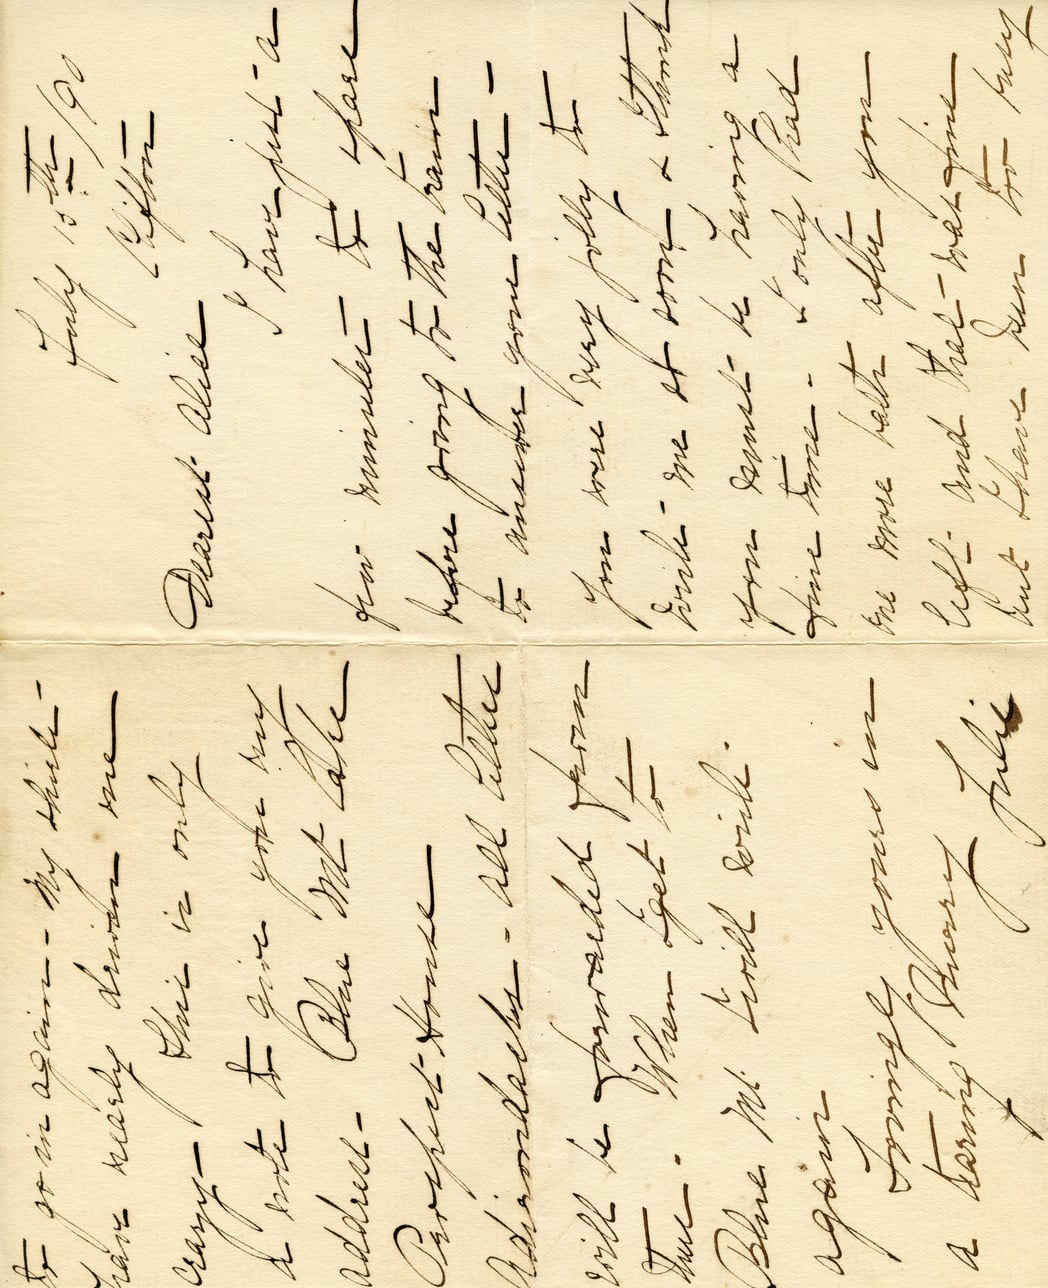 July 15th/90
Clifton
Dearest Alice
I have just a
few minutes to spare
before going to the train
to answer your letter -
You were very jolly to
write me so soon & I think
you must be having a
fine time. & only I had
one more bath after you
left and that was fine
but I have been too busy
to go in again - My things
have nearly driven me
crazy - This is only
a note to give you my
address - Blue Mt Lake
Prospect House
Adirondacks - All letters
will be forwarded from
there. When I get to
Blue Mt. I will write
again
Lovingly yours in
a tearing hurry
Julie